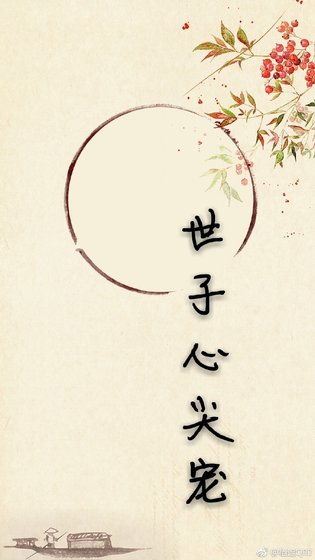 世子心尖宠